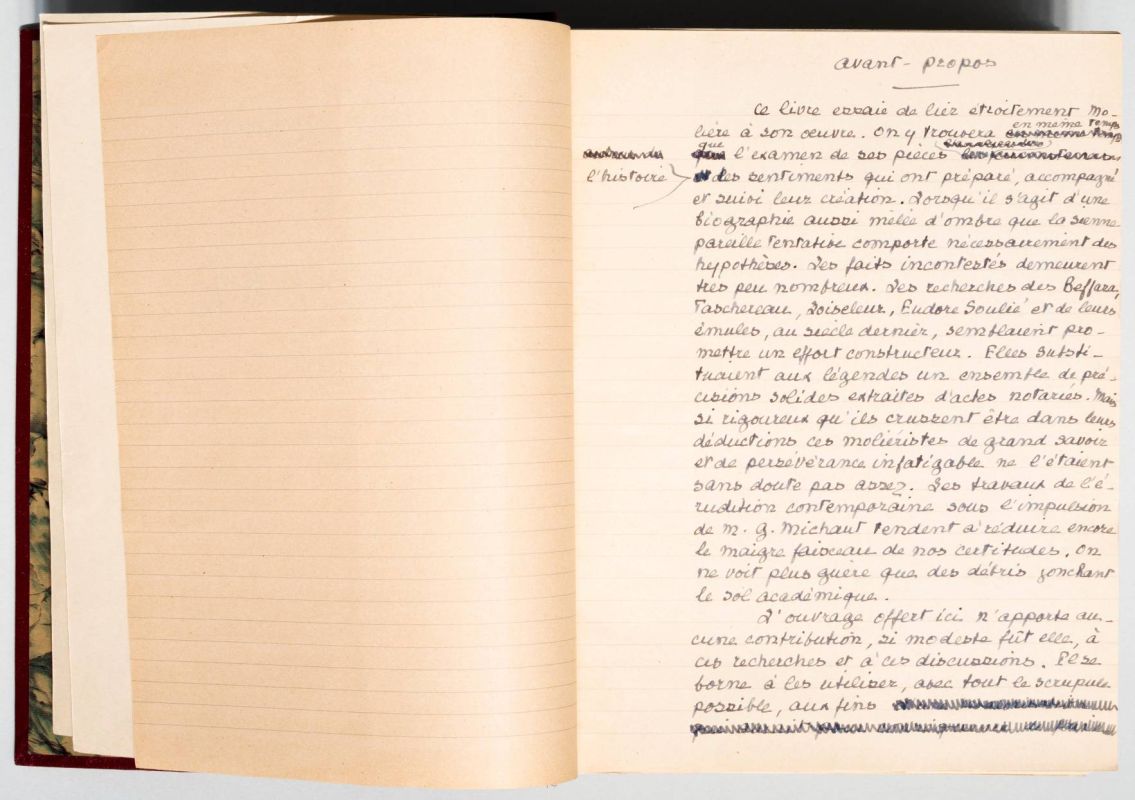 avant-propos
Ce livre essaie de lier étroitement Mo-
en même temps
lière à son œuvre. On y trouvera
que
l'examen de ses pièces
l'histoire
des sentiments qui ont préparé, accompagné
et suivi leur création. Lorsqu'il s'agit d'une
biographie aussi mêlée d'ombre que la sienne
pareille tentative comporte nécessairement des
hypothèses. Les faits incontestés demeurent
très peu nombreux. Les recherches des Beffara,
Taschereau, Loiseleur, Eudore Soulié et de leurs
émules, au siècle dernier, semblaient pro-
mettre un effort constructeur. Elles substi-
tuaient aux légendes un ensemble de pré-
cisions solides extraites d'actes notariés. Mais
si rigoureux qu'ils crussent être dans leurs
déductions ces moliéristes de grand savoir
et de persévérance infatigable ne l'étaient
sans doute pas assez. Les travaux de l'é-
rudition contemporaine sous l'impulsion
de M. G. Michaut tendent à réduire encore
le maigre faisceau de nos certitudes. On
ne voit plus guère que des débris jonchant
le sol académique.
L'ouvrage offert ici n'apporte au-
cune contribution, si modeste fût elle, à
ces recherches et à ces discussions. Il se
borne à les utiliser, avec tout le scrupule
possible, aux fins